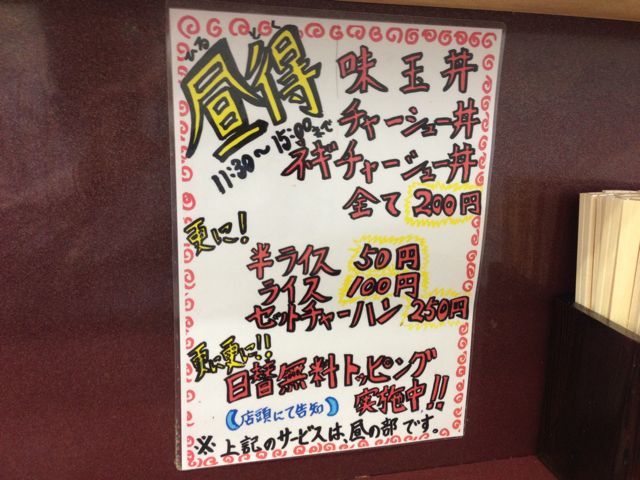 昼得
ひるとく
11:30～15:00まで
味玉丼
チャーシュー丼
ネギチャーシュー丼
全て 200円
更に!
半ライス 50円
ライス 100円
セットチャーハン 250円
更に更に!!
日替無料トッピング
実施中!!
(店頭にて告知)
※上記のサービスは、昼の部です。